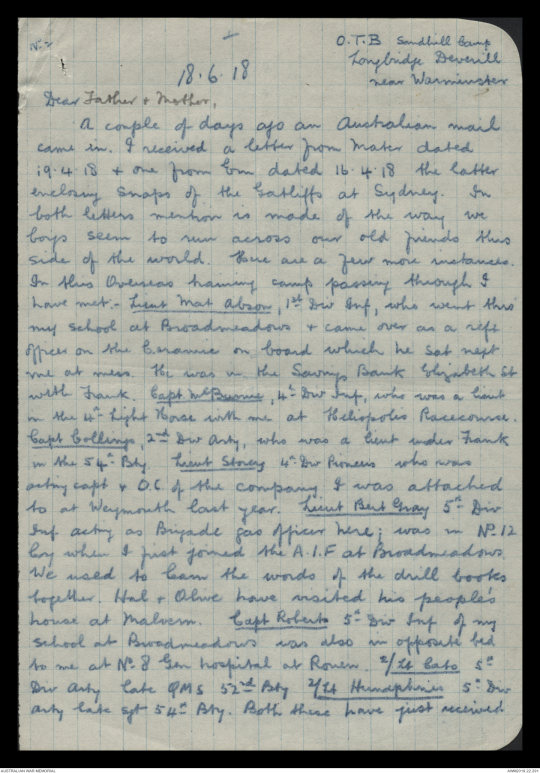 No 2
O.T.B Sandhill Camp
Longbridge Deverill
near Warminster
18.6.18
Dear Father & Mother,
A couple of days ago an Australian mail
came in. I received a letter from Mater dated
19.4.18 & one from Em dated 16.4.18 the latter
enclosing snaps of the Gatliffs at Sydney. In
both letters mention is made of the way we
boys seem to run across our old friends this
side of the world. Here are a few more instances.
In this Overseas training camp passing through I
have met:- Lieut Mat Abson, 1st Div Inf, who went thro
my school at Broadmeadows & came over as a reft
officer on the Ceramic on board which he sat next
me at mess. He was in the Savings Bank Elizabeth St
with Frank. Capt, 4th Div Inf, who was a lieut
in the 4th Light Horse with me at Heliopolis Racecourse.
Capt Collings, 2nd Div Arty, who was a lieut under Frank
in the 54th Bty. Lieut Storey 4th Div Pioneers who was
acting capt & O.C. of the company I was attached
to at Weymouth last year. Lieut Bert Gray 5th Div
Inf acting as Brigade gas officer here; was in No. 12
Coy when I just joined the A.I.F at Broadmeadows.
We used to learn the words of the drill books
together. Hal & Olive have visited his people's
house at Malvern. Capt Roberts 5th Div Inf of my
school at Broadmeadows was also in opposite bed
to me at No. 8 Gen hospital at Rouen. 2/Lt Cato 5th
Div Arty late QMS 52nd Bty 2/Lt Humphries 5th Div
arty late sgt 54th Bty. Both these have just received
AUSTRALIAN WAR MEMORIAL